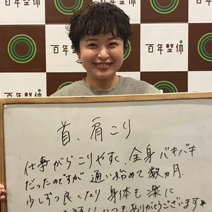 百年整体
百年整体
首、肩こり
仕事がらこりやすく、全身バキバキ
だったのですが通い始めて数ヵ月、
少しずつ良くなり身体も楽に
いつもありがとうございます